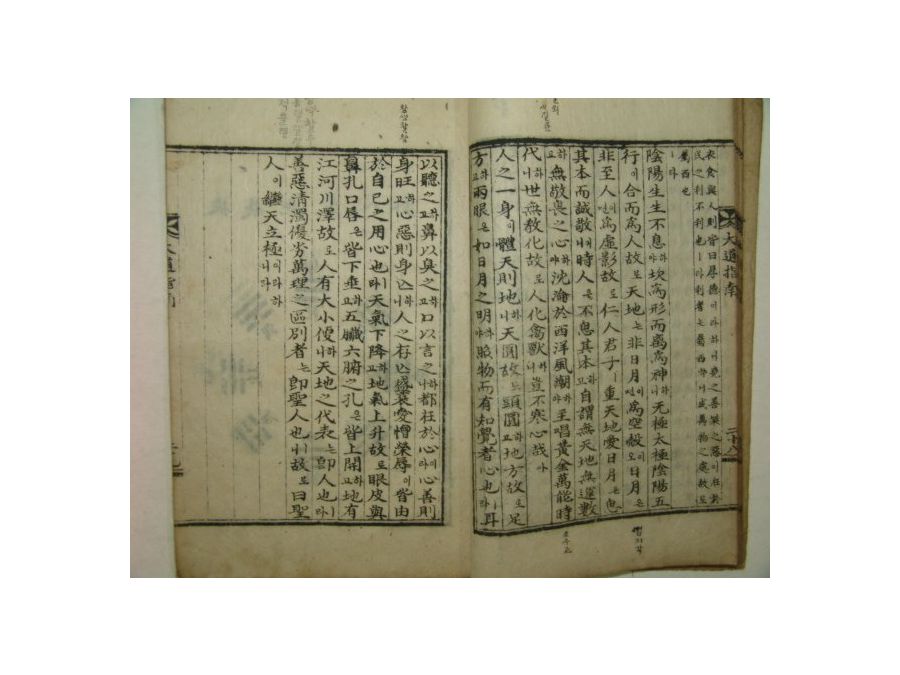 衣食與人則皆曰尋德이라하이堯之善桀之惡이在於
民之利不利也ㅣ라利者는屬西하니成萬物之處故로
屬西也ㅣ라
陰陽生生不息하야坎爲形而离爲神하니无極太極陰陽五
行이合而爲人故로天地ㅣ非日月이면爲空殼이오日月은
非至人이면爲虛影故로仁人君子ㅣ重天地愛日月은
其本而誠敬이니時人은不息其本하고自謂無天地無
하고無敬畏之心하야沈淪於西洋風潮하야主唱黃金萬能時
代하니世無敎化故로人化禽獸니豈不寒心哉아
人之一身이體天則地니天圓故로頭圓하고地方故로足
方하고兩眼은如日月之明하야眼物而有知覺者心也ㅣ라耳
大道指南
二十八
以聽之하고鼻以臭之하고口以言之나都在於心이라心善則
身旺하고心惡則身亡하나니人之存亡盛衰愛憎榮辱이皆由
於自己之用心也ㅣ라天氣下降하고地氣上升故로眼皮與
鼻孔口唇은皆下垂하고五臟六腑之孔은皆上開하고地有
江河川澤故로人有大小便하니天地之代表는卽人也ㅣ라
善惡淸濁優劣萬理之區別者는卽聖人也ㅣ니故로曰聖
人이繼天立極이라하니라
大道指南
二十九